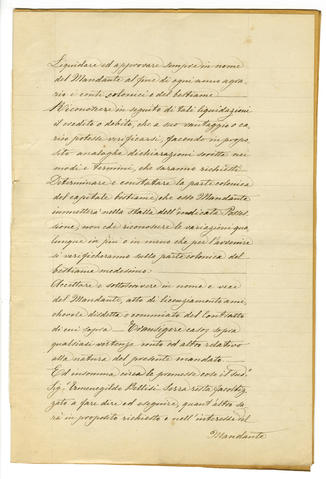 Liquidare ed approvare sempre in nome
del Mandante al fine di ogni anno agra-
rio i conti colonici e del bestiame.
Riconoscere in seguito di tali liquidazioni
il credito o debito, che a suo vantaggio o ca-
rico potesse verificarsi, facendo in propo-
sito analoghe dichiarazioni scritte nei
modi e termini, che saranno richiesti.
Determinare e constatare la parte colonica
del capitale bestiame, che esso Mandante
immetterà nella stalla dell'indicata Posses-
sione, non che riconoscere le variazioni qua-
lunque in più o in meno che per l'avvenire
si verificheranno sulla parte colonica del
bestiame medesimo.
Accettare e sottoscrivere in nome e vece
del Mandante, atto di licenziamento ami-
chevole disdetta o commiato del Contratto
di cui sopra — Transigere ca sopra
qualsiasi vertenza conto ed altro relativo
alla natura del presente mandato.
Ed insomma circa le premesse cose il sud.°
Sig.r Ermenegildo Serra resta facoltiz-
zato a fare dire ed eseguire, quant'altro sa-
rà in proposito richiesto e nell'interesse del
Mandante